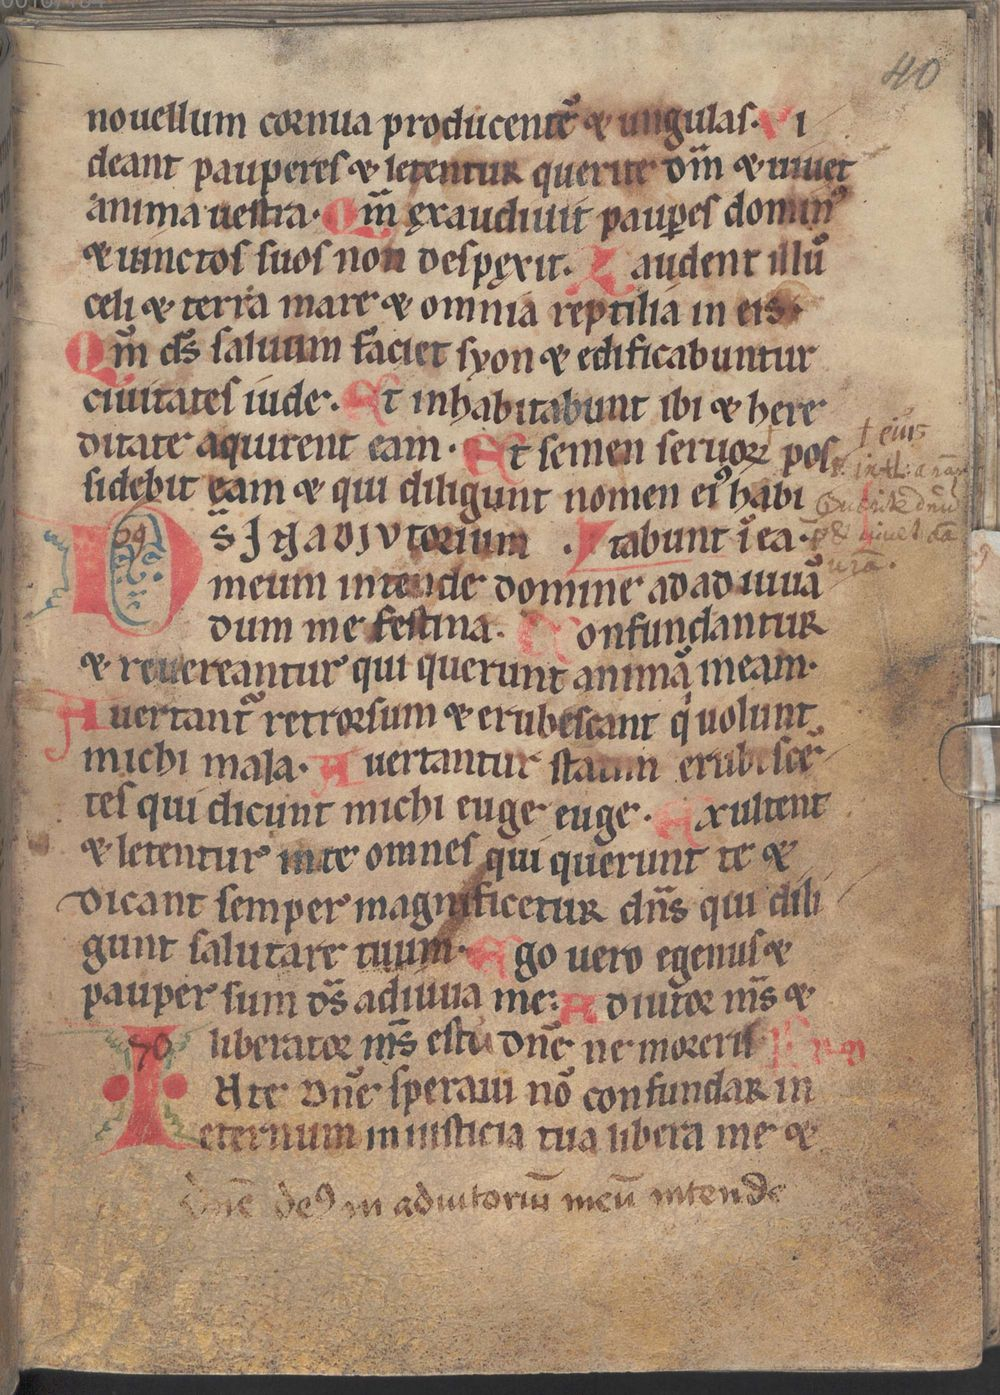 40
nouellum cornua producentē & ungulas. Vi
deant pauperes & letentur querite dm̄ & uiuet
anima uestra. Qm̄ exaudiuit paupes dominꝰ
& uinctos suos non despexit. Laudent illū
celi & terra mare & omnia reptilia in eis.
Qm̄ ds̄ saluum faciet syon & edificabuntur
ciuitates iude. Et inhabitabunt ibi & here
ditate aquirent eam. Et semen seruoꝝ pos
† eius
sidebit eam & qui diligunt nomen eiꝰ habi
Ds̄ IN ADIVTorium tabunt ī ea.
69
meum intende domine ad ad iuuā
dum me festina. Confundantur
& reuereantur qui querunt animā meam.
Auertantr̄ retrorsum & erubescant q uolunt
michi mala. Auertantur statim erubescē
tes qui dicunt michi euge euge. Exultent
& letentur in te omnes qui querunt te &
dicant semper magnificetur dn̄s qui dili
gunt salutare tuum. Ego uero egenus &
pauper sum ds̄ adiuua me. Adiutor ms̄ &
liberator ms̄ es tu dn̄e ne moreris
70
IN te dn̄e speraui nō confundar in
eternum in iusticia tua libera me &
dn̄e deꝰ in adiutoriū meū intende